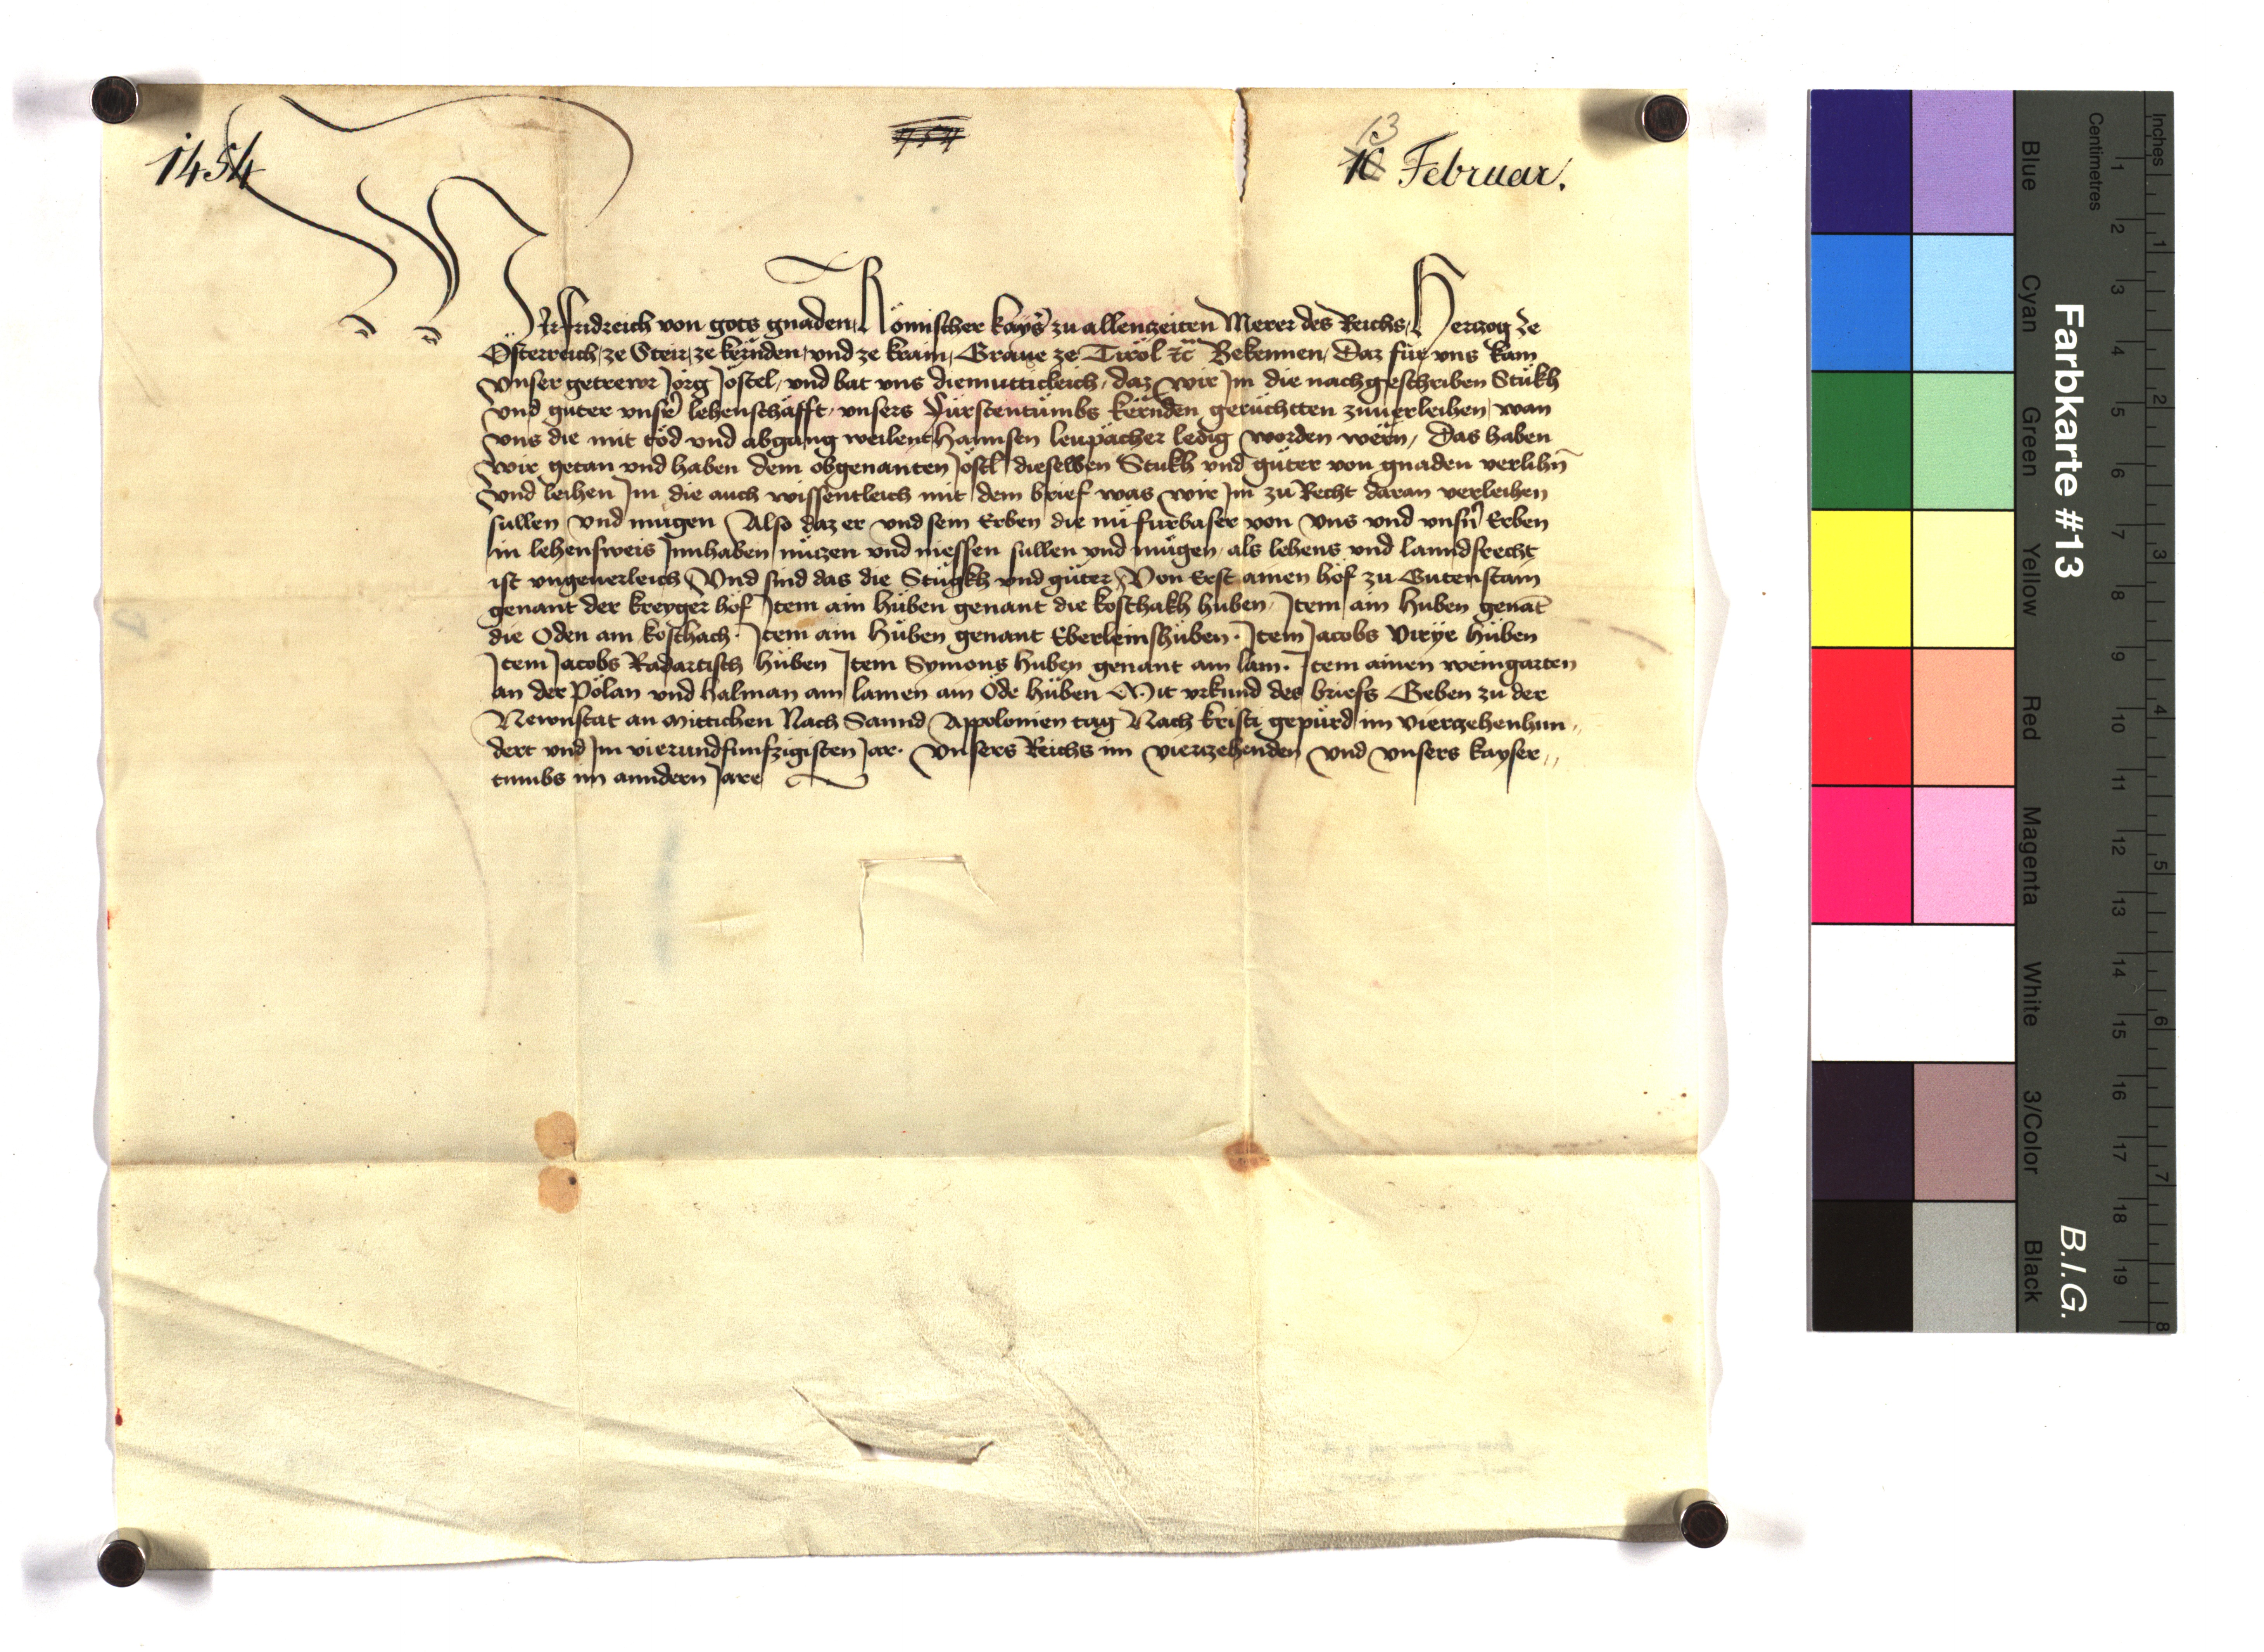 1454
1454
13
10 Februar.
Wir Fridreich von gots gnaden, Römischer kayſ zu allenczeiten Merer des Reichs, Herczog ze
Österreich, ze Steir, ze kërnden, vnd ze krain, Graue ze Tirol etc Bekennen, Daz für vns kam
vnser getrewr Jörg Jöstel, vnd bat vns diemutticleich, daz wir Im die nachgeschriben Stükh
vnd güter vnsr lehenschäfft, vnsers Fürstentümbs kërnden, gerüchtten zuuerleihen, wan
vns die mit töd vnd abgang weilent Hannsen leupacher ledig worden wërn, Das haben
wir getan vnd haben dem obgenanten Jöstl dieselben Stukh vnd güter von gnaden verlihn
vnd leihen Im die auch wissentleich mit dem brief was wir Im zu Recht daran verleihen
sullen vnd mugen Also daz er vnd sein Erben die nu furbaser von vns vnd vnsn Erben
in lehensweis Innhaben nüczen vnd niessen sullen vnd mügen, als lehens vnd lanndsrecht
ist vngeuerleich Vnd sind das die Stugkh vnd güter, Von Erst ainen hof zu Gutenstain
genant der kreyger hof Item ain Hüben genant die koschakh huben, Item ain Huben genat
die Oden am koschach. Item ain Hüben genant Eberleinshüben. Item Jacobs Virye Hüben
Item Jacobs Radartisch hüben Item Symons huben genant am lam. Item ainen weingarten
an der Pölan vnd halman am lamen ain Öde hüben Mit vrkund des briefs Geben zu der
Newnstat an Mittichen Nach Sannd Appolonien tag Nach kristi gepurd im vierczehenhun„
dert vnd Im vierundfunfzigisten Jar. Vnsers Reichs im vierczehenden vnd vnsers kayser„
tumbs im anndern Jare
Farbkarte #13
B.I.G.
Inches
Centimetres
1 2 3 4 5 6 7 8
1 2 3 4 5 6 7 8 9 10 11 12 13 14 15 16 17 18 19
Blue
Cyan
Green
Yellow
Red
Magenta
White
3/Color
Black